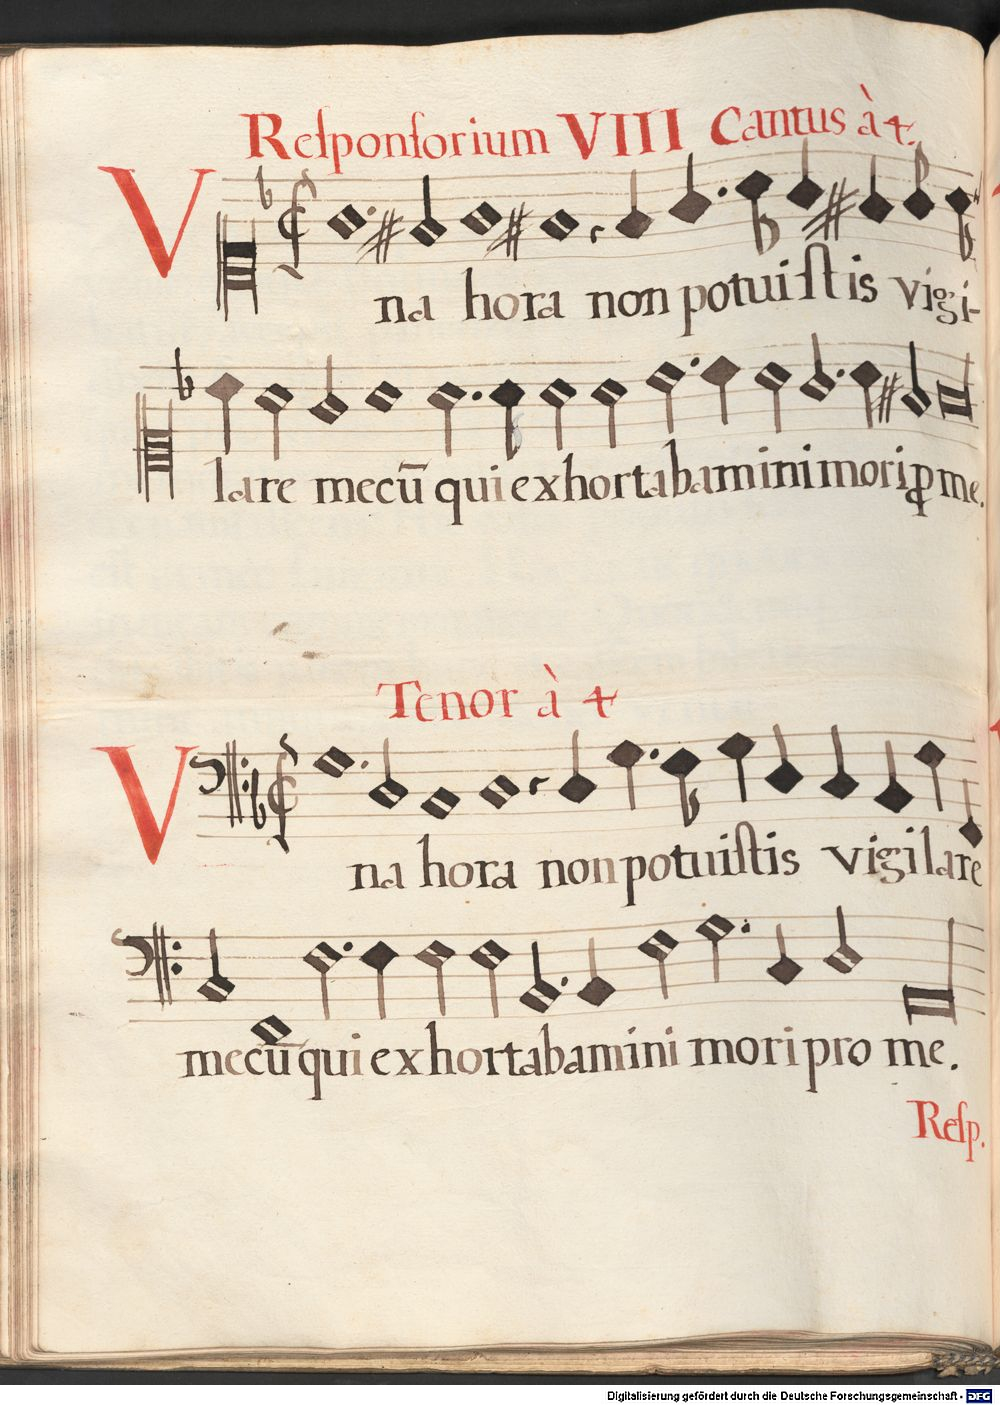 Reſponſorium VIII Cantus à 4.
Vna hora non potuiſtis vigi-
lare mecū qui exhortabamini mori ꝓ me.
Tenor à 4
Vna hora non potuiſtis vigilare
mecū qui exhortabamini mori pro me.
Reſp.
Digitalisierung gefördert durch die Deutsche Forschungsgemeinschaft - DFG